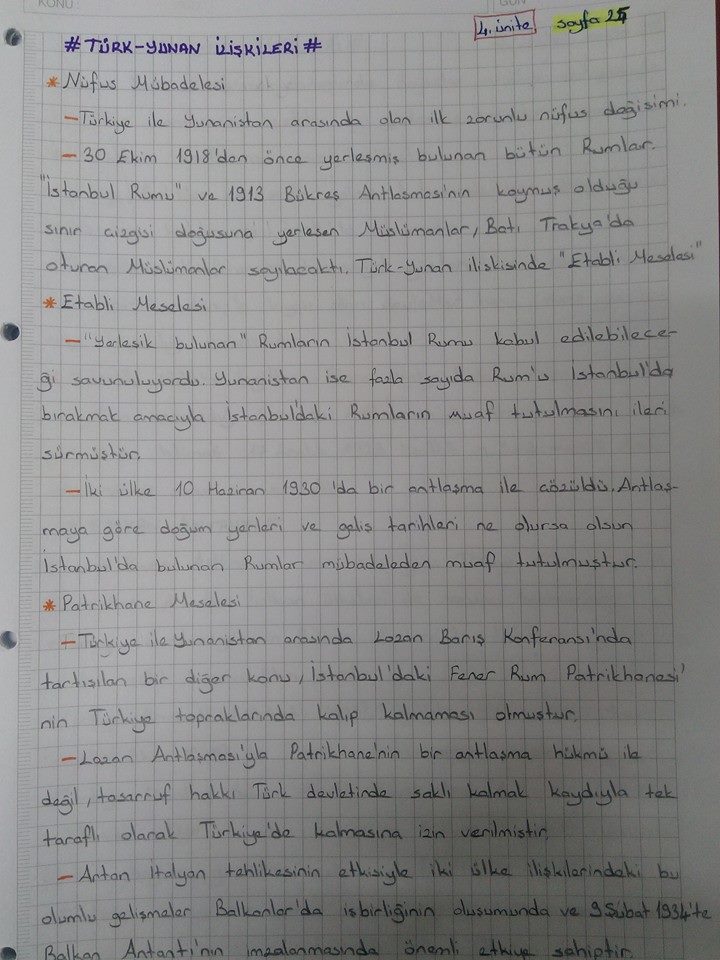 KONU
GÜN
4. ünite sayfa 25
# TÜRK-YUNAN İLİŞKİLERİ #
* Nüfus Mübadelesi
- Türkiye ile Yunanistan arasında olan ilk zorunlu nüfus değişimi.
- 30 Ekim 1918'den önce yerleşmiş bulunan bütün Rumlar.
"İstanbul Rumu" ve 1913 Bükreş Antlaşması'nın koymuş olduğu
sınır çizgisi doğusuna yerleşen Müslümanlar, Batı Trakya'da
oturan Müslümanlar sayılacaktı. Türk-Yunan ilişkisinde "Etabli Meselesi"
* Etabli Meselesi
- "Yerleşik bulunan" Rumların İstanbul Rumu kabul edilebilece-
ği savunuluyordu. Yunanistan ise fazla sayıda Rum'u İstanbul'da
bırakmak amacıyla İstanbul'daki Rumların muaf tutulmasını ileri
sürmüştür.
- İki ülke 10 Haziran 1930'da bir antlaşma ile çözüldü. Antlaş-
maya göre doğum yerleri ve geliş tarihleri ne olursa olsun
İstanbul'da bulunan Rumlar mübadeleden muaf tutulmuştur.
* Patrikhane Meselesi
- Türkiye ile Yunanistan arasında Lozan Barış Konferansı'nda
tartışılan bir diğer konu, İstanbul'daki Fener Rum Patrikhanesi'
nin Türkiye topraklarında kalıp kalmaması olmuştur.
- Lozan Antlaşması'yla Patrikhane'nin bir antlaşma hükmü ile
değil, tasarruf hakkı Türk devletinde saklı kalmak kaydıyla tek
taraflı olarak Türkiye'de kalmasına izin verilmiştir.
- Artan İtalyan tehlikesinin etkisiyle iki ülke ilişkilerindeki bu
olumlu gelişmeler Balkanlar'da işbirliğinin oluşumunda ve 9 Şubat 1934'te
Balkan Antantı'nın imzalanmasında önemli etkiye sahiptir.